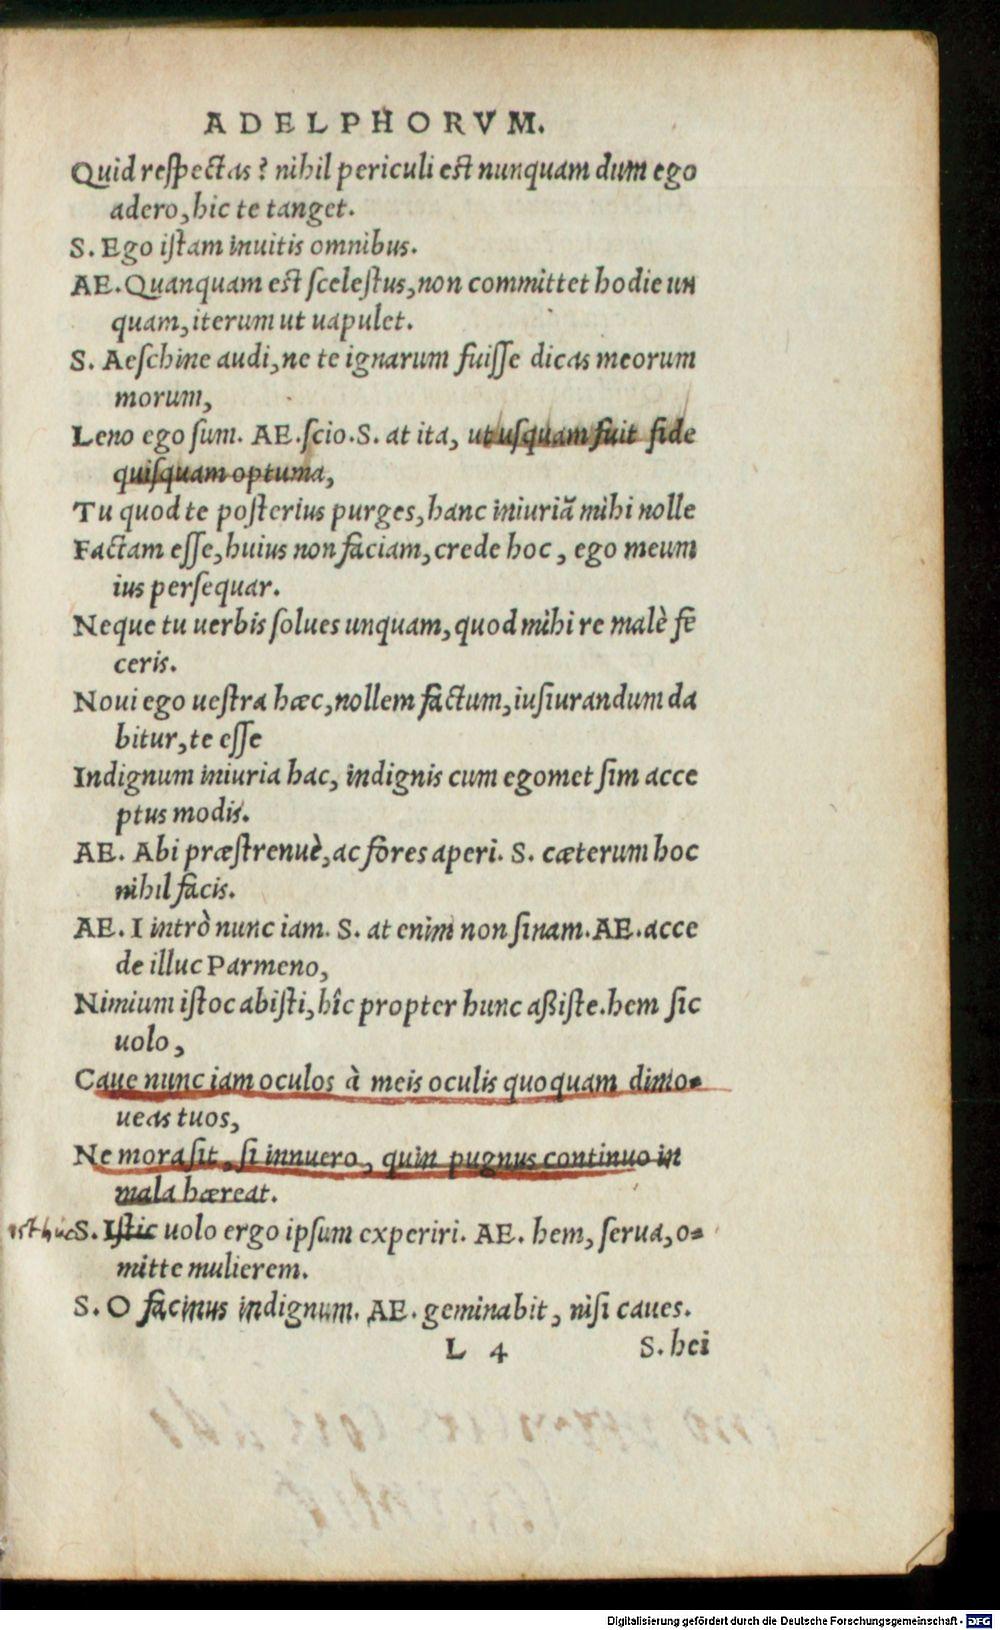 ADELPHORVM.
Quid reſpectas? nihil periculi est nunquam dum ego
adero, hic te tanget.
S. Ego iſtam inuitis omnibus.
AE. Quanquam est ſceleſtus, non committet hodie un
quam, iterum ut uapulet.
S. Aeſchine audi, ne te ignarum fuiſſe dicas meorum
morum,
Leno ego ſum. AE. ſcio. S. at ita, ut uſquam fuit fide
quiſquam optuma,
Tu quod te poſterius purges, hanc iniuriã mihi nolle
Factam eſſe, huius non faciam, crede hoc, ego meum
ius perſequar.
Neque tu uerbis ſolues unquam, quod mihi re malè fe
ceris.
Noui ego ueſtra hæc, nollem factum, iuſiurandum da
bitur, te eſſe
Indignum iniuria hac, indignis cum egomet ſim acce
ptus modis.
AE. Abi præſtrenuè, ac fores aperi. S. cæterum hoc
nihil facis.
AE. I intrò nunc iam. S. at enim non ſinam. AE. acce
de illuc Parmeno,
Nimium iſtoc abiſti, hîc propter hunc aßiſte. hem ſic
uolo,
Caue nunc iam oculos à meis oculis quoquam dimo-
ueas tuos,
Ne mora ſit, ſi innuero, quin pugnus continuo in
mala hæreat.
isthuc S. Iſtic uolo ergo ipſum experiri. AE. hem, ſerua, o-
mitte mulierem.
S. O facinus indignum. AE. geminabit, niſi caues.
L 4 S. hei
Digitalisierung gefördert durch die Deutsche Forschungsgemeinschaft - DFG